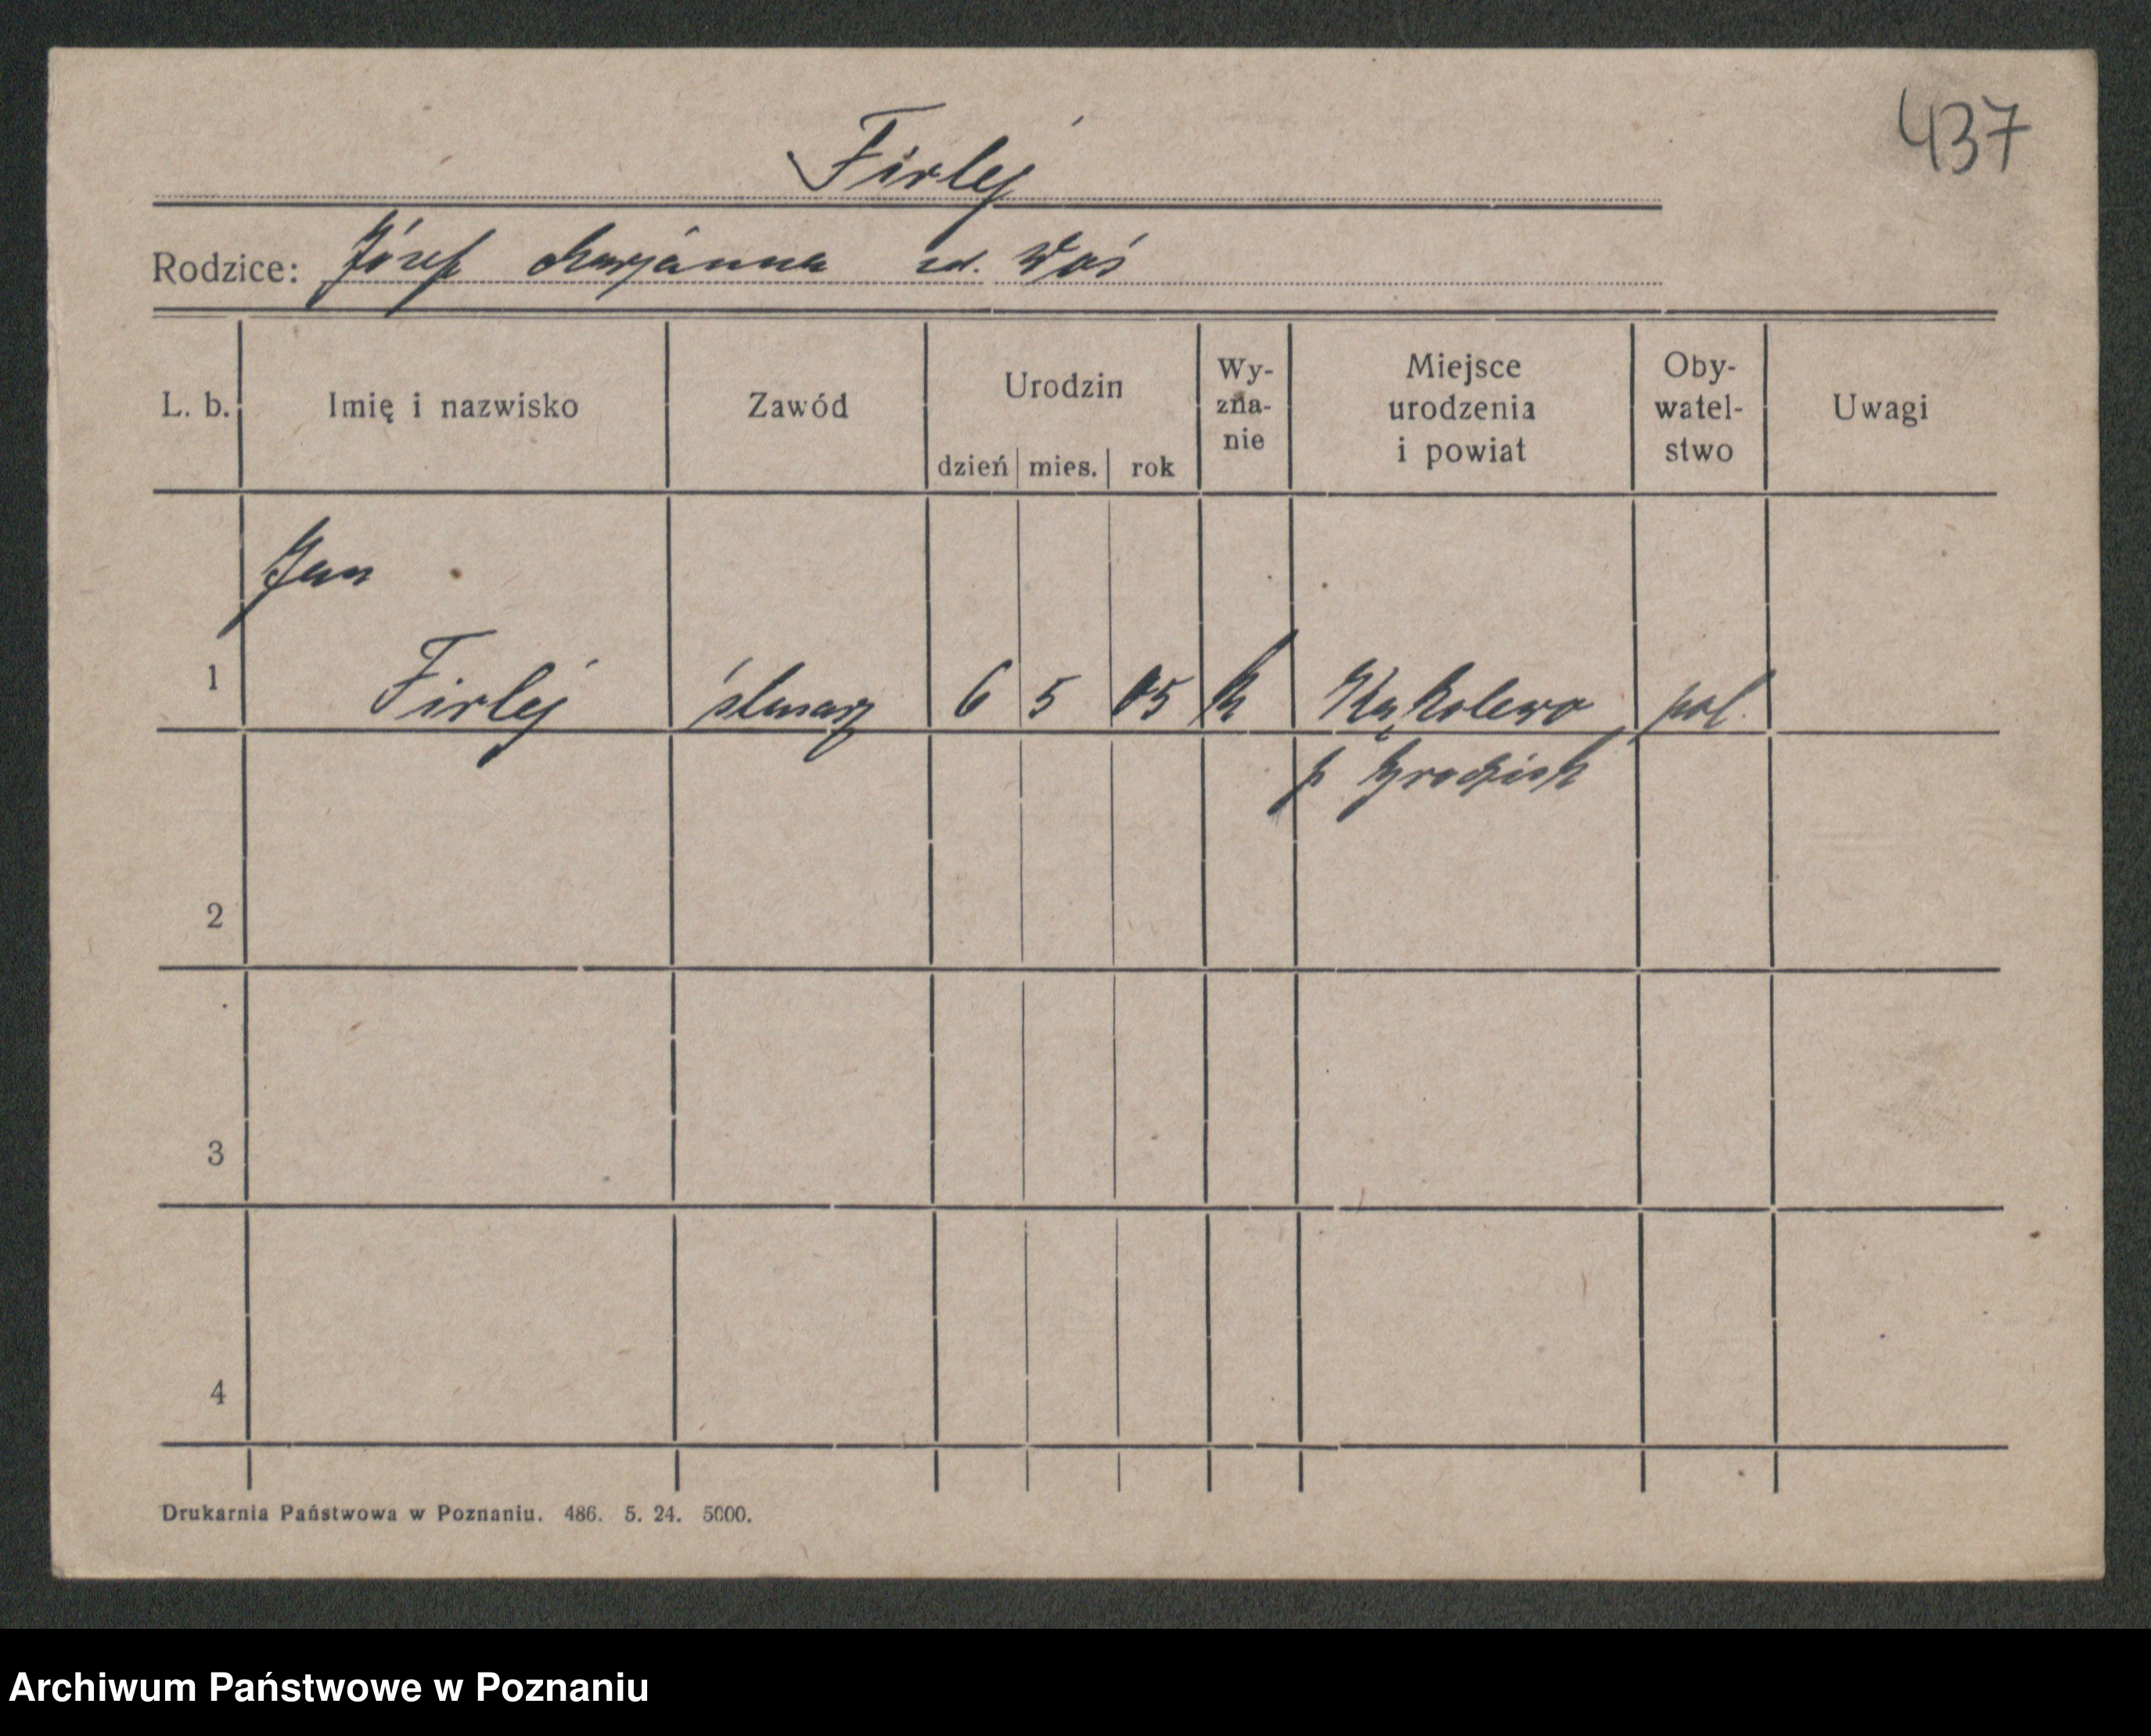 437
Firlej
Rodzice: Józef Marjanna zd. Woś
L. b. Imię i nazwisko Zawód Urodzin dzień mies. rok Wy-zna-nie Miejsce urodzenia i powiat Oby-watel-stwo Uwagi
Jan
1 Firlej ślusarz 6 5 05 k Kąkolewo pol.
p Grodzisk
2
3
4
Drukarnia Państwowa w Poznaniu. 486. 5. 24. 5000.
Archiwum Państwowe w Poznaniu